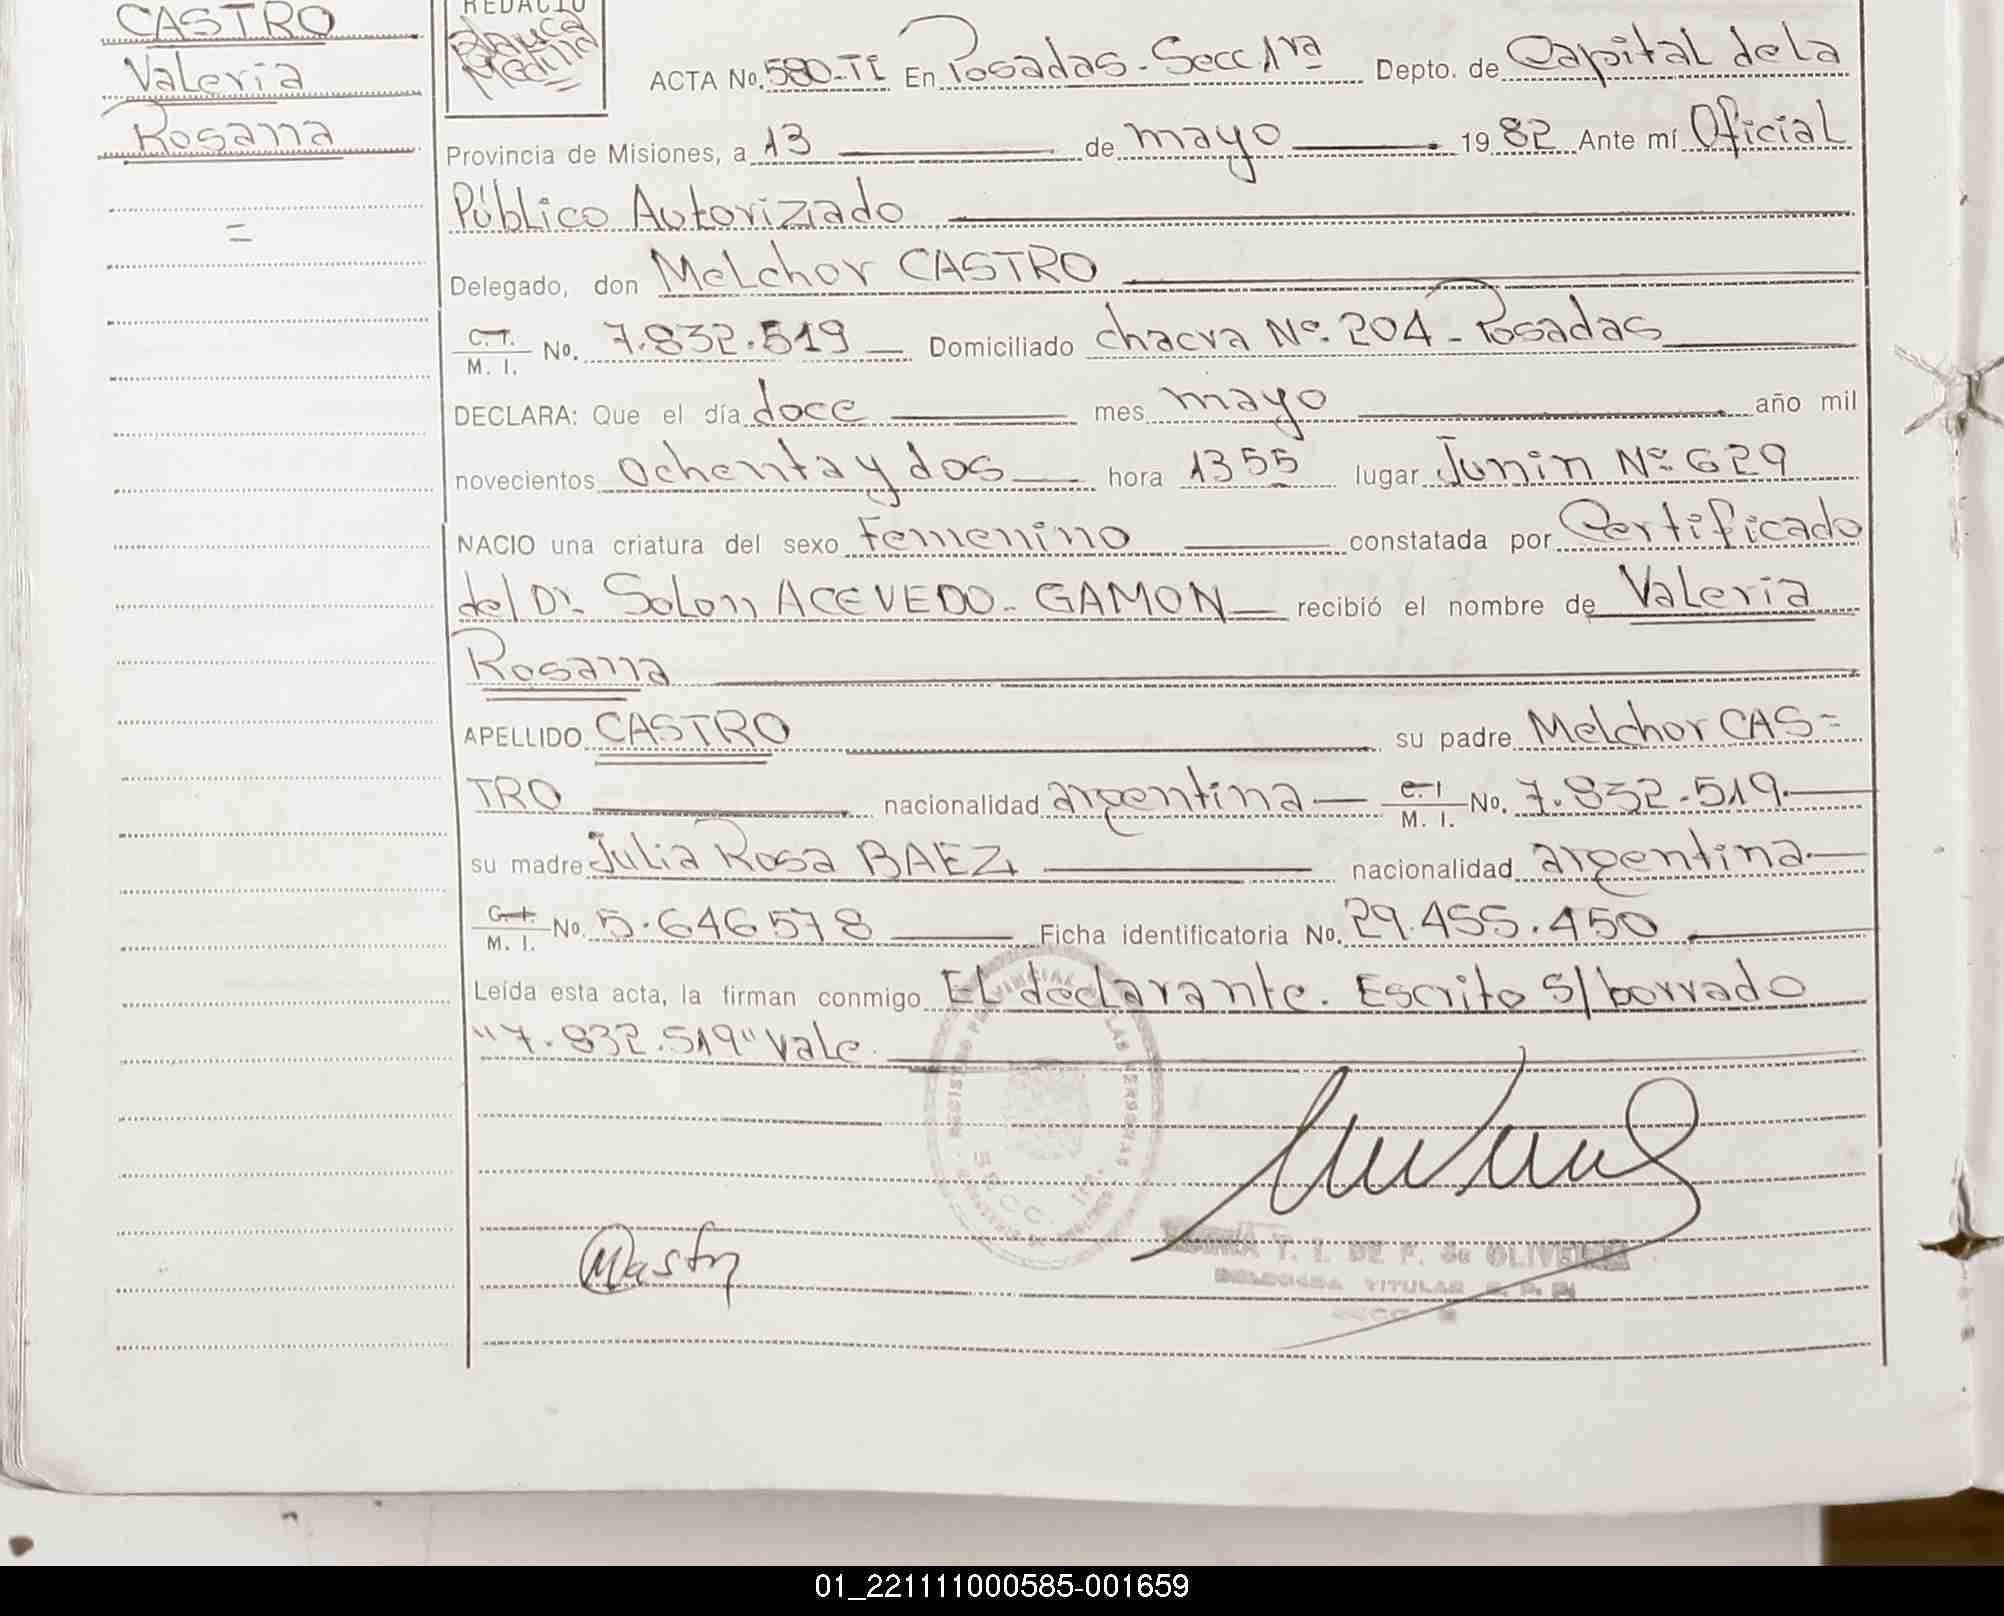 CASTRO
Valeria
Rosana
=
REDACTO
Blanca
Medina
ACTA No. 580-TI En Posadas-Secc 1ra Depto. de Capital de la
Provincia de Misiones, a 13 de mayo 1982 Ante mí Oficial
Público Autorizado
Delegado, don Melchor CASTRO
C.I. M. I. No. 7.832.519 Domiciliado chacra Nº. 204 - Posadas
DECLARA: Que el día doce mes mayo año mil
novecientos ochenta y dos hora 13 55 lugar Junin Nº 629
NACIO una criatura del sexo Femenino constatada por Certificado
del Dr. Solon ACEVEDO - GAMON recibió el nombre de Valeria
Rosana
APELLIDO CASTRO su padre Melchor CAS=
TRO nacionalidad argentina C.I M. I. No. 7.832.519.
su madre Julia Rosa BAEZ nacionalidad argentina
C.I. M. I. No. 5.646578 Ficha identificatoria No. 29.455.450
Leída esta acta, la firman conmigo El declarante. Escrito s/borrado
"7.832.519" Vale.
REGISTRO PROVINCIAL LAS PERSONAS
SECC. 1ra.
T. I. DE F. de OLIVEIRA
DELEGADA TITULAR
01_221111000585-001659